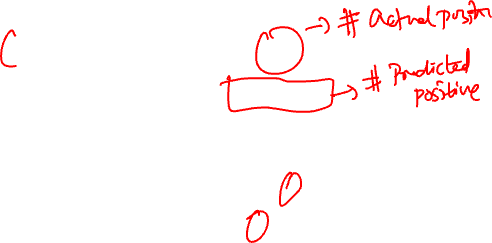 # Actual positi
# Predicted
positive